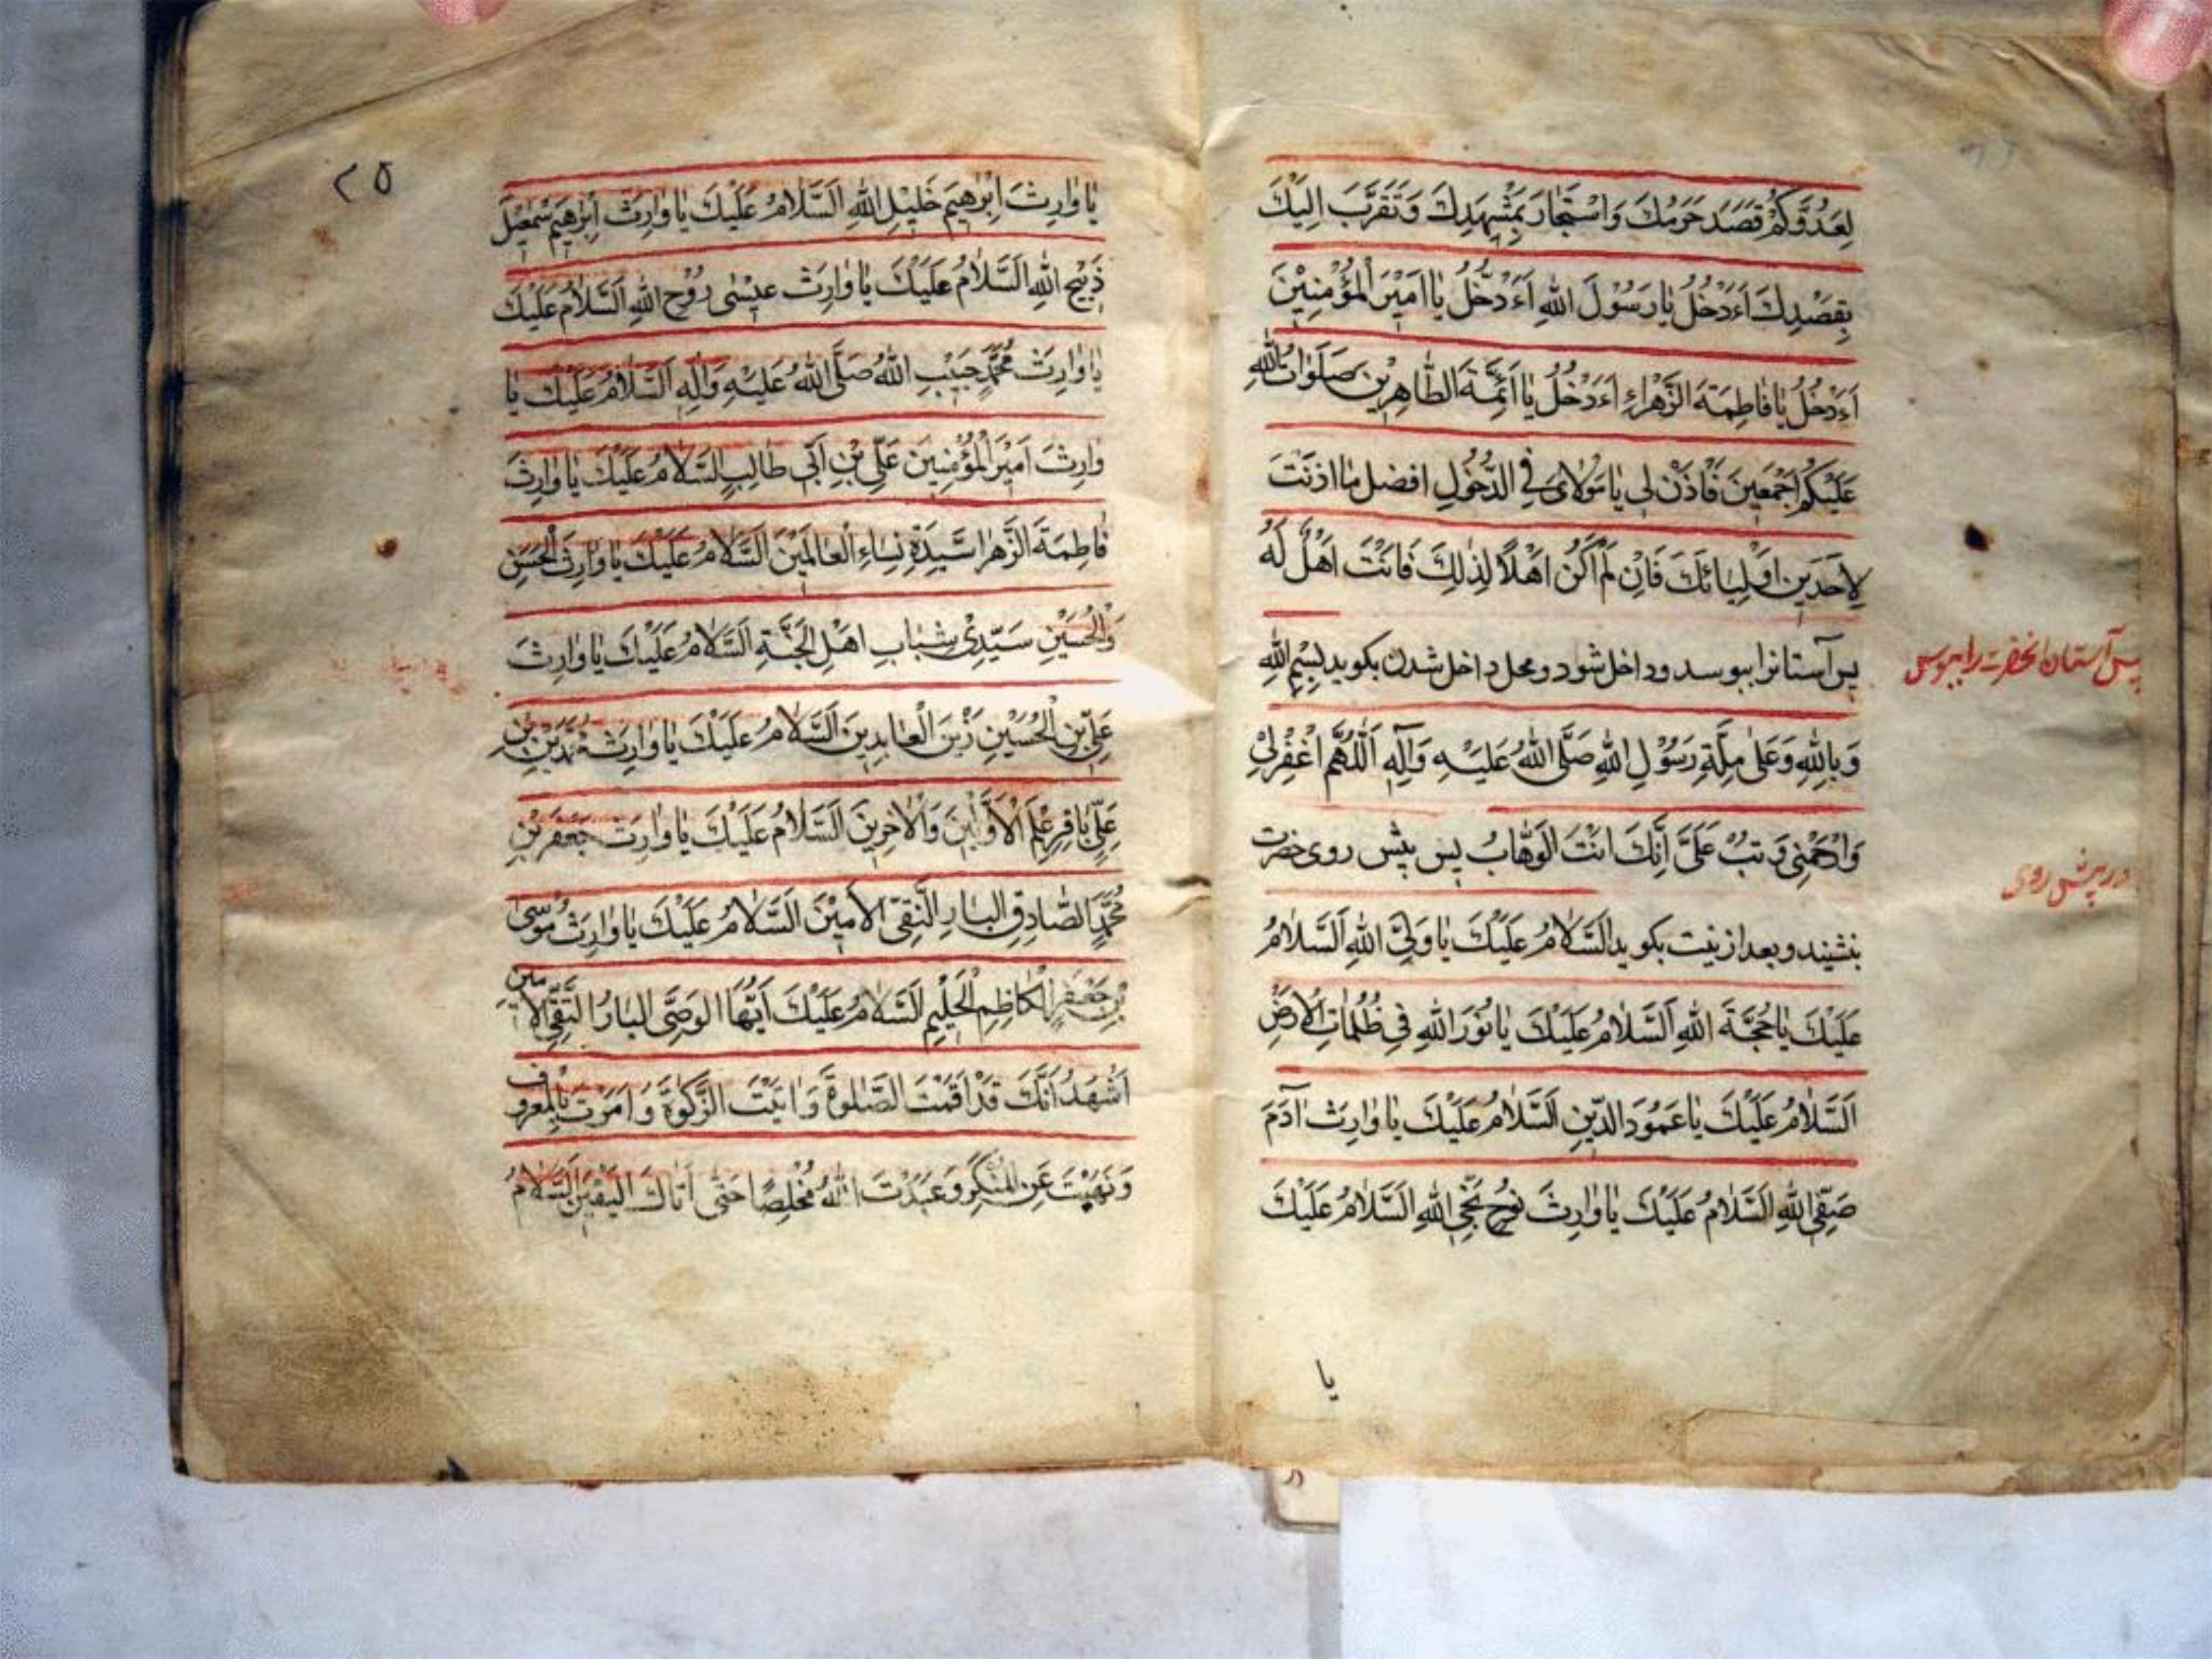 لِعَدُوِّكُمْ قَصَدَ حَرَمَكَ وَاسْتَجَارَ بِمَشْهَدِكَ وَتَقَرَّبَ اِلَيْكَ
بِقَصْدِكَ ءَاَدْخُلُ يَا رَسُوْلَ اللهِ ءَاَدْخُلُ يَا اَمِيْرَ الْمُؤْمِنِيْنَ
ءَاَدْخُلُ يَا فَاطِمَةَ الزَّهْرَاءِ ءَاَدْخُلُ يَا اَئِمَّةَ الطَّاهِرِيْن صَلَوَاتُ اللهِ
عَلَيْكُمْ اَجْمَعِينَ فَأْذَنْ لِي يَا مَوْلَاىَ فِي الدُّخُولِ افضل ما اذنْتَ
لِاَحَدٍ مِن اَوْلِيَائِكَ فَاِن لَمْ اَكُنْ اَهْلًا لِذَلِكَ فَانْتَ اَهْلٌ لَهُ
پس آستانرا ببوسد وداخل شود ومحل داخل شدن بکوید بِسْمِ اللهِ
پس آستان انحضرت را ببوس
وَبِاللهِ وَعَلَى مِلَّةِ رَسُوْلِ اللهِ صَلَّى اللهُ عَلَيْهِ وَآلِهِ اَللّٰهُمَّ اغْفِرْلِيْ
وَارْحَمْنِي وَتُبْ عَلَىَّ اِنَّكَ انْتَ الْوَهَّابُ پس پیش روی حضرت
در پیش روی
بنشیند وبعد از نیت بکوید السَّلَامُ عَلَيْكَ يَا وَلِيَّ اللهِ اَلسَّلَامُ
عَلَيْكَ يَا حُجَّةَ اللهِ اَلسَّلَامُ عَلَيْكَ يَا نُوْرَ اللهِ فِي ظُلُمَاتِ الْاَرْضِ
اَلسَّلَامُ عَلَيْكَ يَا عَمُوْدَ الدِّيْنِ اَلسَّلَامُ عَلَيْكَ يَا وَارِثَ آدَمَ
صَفِيِّ اللهِ اَلسَّلَامُ عَلَيْكَ يَا وَارِثَ نُوحٍ نَجِيِّ اللهِ اَلسَّلَامُ عَلَيْكَ
یا
٢٥
يَا وَارِثَ اِبْرٰهِيْمَ خَلِيْلِ اللهِ اَلسَّلَامُ عَلَيْكَ يَا وَارِثَ اِبْرٰهِيْمَ سْمٰعِيْلَ
ذَبِيْحِ اللهِ اَلسَّلَامُ عَلَيْكَ يَا وَارِثَ عِيْسٰى رُوْحِ اللهِ اَلسَّلَامُ عَلَيْكَ
يَا وَارِثَ مُحَمَّدٍ حَبِيْبِ اللهِ صَلَّى اللهُ عَلَيْهِ وَآلِهِ اَلسَّلَامُ عَلَيْكَ يَا
وَارِثَ اَمِيْرَ الْمُؤْمِنِيْنَ عَلِيِّ بْنِ اَبِي طَالِبٍ السَّلَامُ عَلَيْكَ يَا وَارِثَ
فَاطِمَةَ الزَّهْرَا سَيِّدَةِ نِسَاءِ الْعَالَمِيْنَ اَلسَّلَامُ عَلَيْكَ يَا وَارِثَ الْحَسَنِ
وَالْحُسَيْنِ سَيِّدِىْ شَبَابِ اهْلِ الْجَنَّةِ اَلسَّلَامُ عَلَيْكَ يَا وَارِثَ
عَلِيِّ بْنِ الْحُسَيْنِ زَيْنَ الْعَابِدِينَ اَلسَّلَامُ عَلَيْكَ يَا وَارِثَ مُحَمَّدِ بْنِ
عَلِيٍّ بَاقِرِ عِلْمِ الْاَوَّلِيْنَ وَالْاٰخِرِيْنَ اَلسَّلَامُ عَلَيْكَ يَا وَارِثَ جَعْفَرِ بْنِ
مُحَمَّدٍ الصَّادِقِ البَارِ التَّقِيِّ الْاَمِيْنَ اَلسَّلَامُ عَلَيْكَ يَا وَارِثَ مُوْسَى
بْنِ جَعْفَرٍ الْكَاظِمِ الْحَلِيْمِ اَلسَّلَامُ عَلَيْكَ اَيُّهَا الْوَصِيُّ البَارُّ التَّقِيُّ الاَمين
اَشْهَدُ اَنَّكَ قَدْ اَقَمْتَ الصَّلٰوةَ وَاٰتَيْتَ الزَّكٰوةَ وَ اَمَرْتَ بِالْمَعْرُوْفِ
وَنَهَيْتَ عَنِ الْمُنْكَرِ وَعَبَدْتَ اللهَ مُخْلِصًا حَتّٰى اَتَاكَ الْيَقِيْنُ اَلسَّلَامُ